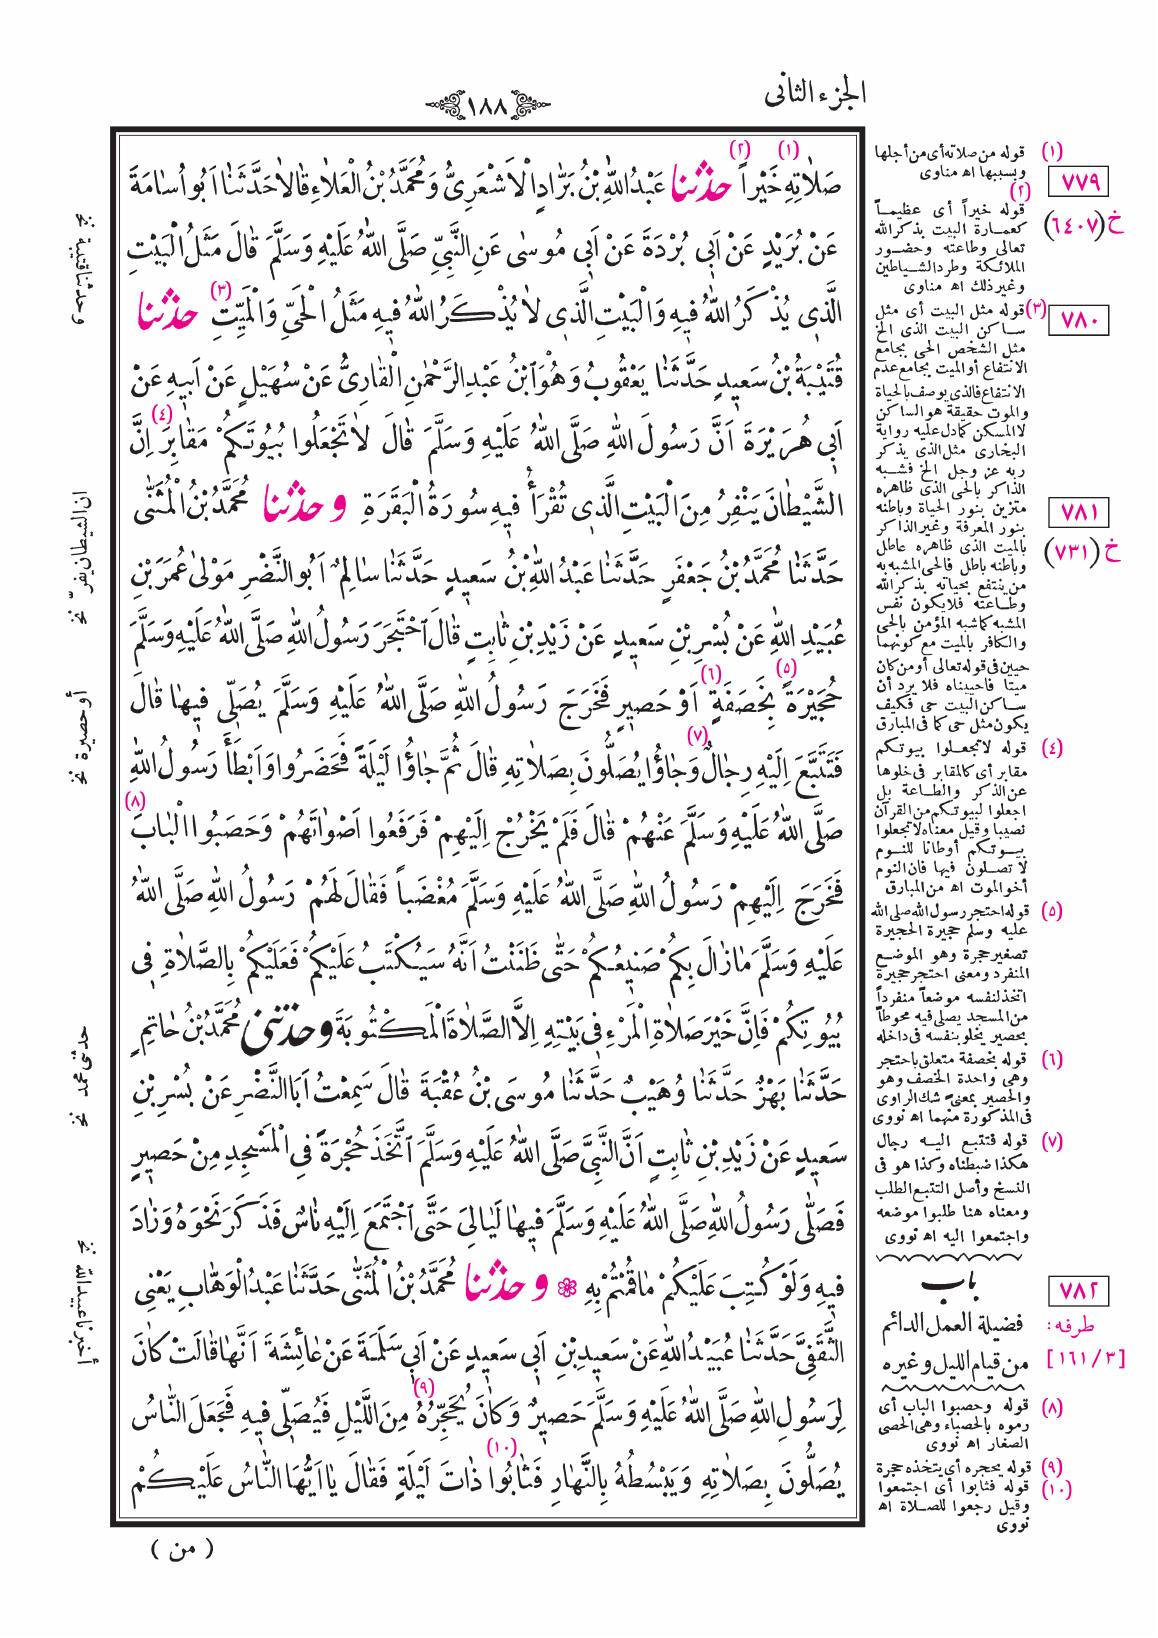 الجزء الثانى
١٨٨
صَلَاتِهِ (١) خَيْراً (٢) حدثنا عَبْدُ اللهِ بْنُ بَرَّادٍ الْاَشْعَرِىُّ وَمُحَمَّدُ بْنُ الْعَلَاءِ قَالَا حَدَّثَنَا اَبُو اُسَامَةَ
عَنْ بُرَيْدٍ عَنْ اَبِى بُرْدَةَ عَنْ اَبِى مُوسٰى عَنِ النَّبِىِّ صَلَّى اللهُ عَلَيْهِ وَسَلَّمَ قَالَ مَثَلُ الْبَيْتِ
الَّذِى يُذْكَرُ اللهُ فِيهِ وَالْبَيْتِ الَّذِى لَا يُذْكَرُ اللهُ فِيهِ مَثَلُ الْحَىِّ وَالْمَيِّتِ (٣) حدثنا
قُتَيْبَةُ بْنُ سَعِيدٍ حَدَّثَنَا يَعْقُوبُ وَهُوَ ابْنُ عَبْدِ الرَّحْمٰنِ الْقَارِىُّ عَنْ سُهَيْلٍ عَنْ اَبِيهِ عَنْ
اَبِى هُرَيْرَةَ اَنَّ رَسُولَ اللهِ صَلَّى اللهُ عَلَيْهِ وَسَلَّمَ قَالَ لَا تَجْعَلُوا بُيُوتَكُمْ مَقَابِرَ (٤) اِنَّ
الشَّيْطَانَ يَنْفِرُ مِنَ الْبَيْتِ الَّذِى تُقْرَأُ فِيهِ سُورَةُ الْبَقَرَةِ وحدثنا مُحَمَّدُ بْنُ الْمُثَنّٰى
حَدَّثَنَا مُحَمَّدُ بْنُ جَعْفَرٍ حَدَّثَنَا عَبْدُ اللهِ بْنُ سَعِيدٍ حَدَّثَنَا سَالِمٌ اَبُو النَّضْرِ مَوْلٰى عُمَرَ بْنِ
عُبَيْدِ اللهِ عَنْ بُسْرِ بْنِ سَعِيدٍ عَنْ زَيْدِ بْنِ ثَابِتٍ قَالَ احْتَجَرَ رَسُولُ اللهِ صَلَّى اللهُ عَلَيْهِ وَسَلَّمَ
حُجَيْرَةً (٥) بِخَصَفَةٍ (٦) اَوْ حَصِيرٍ فَخَرَجَ رَسُولُ اللهِ صَلَّى اللهُ عَلَيْهِ وَسَلَّمَ يُصَلِّى فِيهَا قَالَ
فَتَتَبَّعَ اِلَيْهِ رِجَالٌ (٧) وَجَاؤُا يُصَلُّونَ بِصَلَاتِهِ قَالَ ثُمَّ جَاؤُا لَيْلَةً فَحَضَرُوا وَاَبْطَأَ رَسُولُ اللهِ
صَلَّى اللهُ عَلَيْهِ وَسَلَّمَ عَنْهُمْ قَالَ فَلَمْ يَخْرُجْ اِلَيْهِمْ فَرَفَعُوا اَصْوَاتَهُمْ وَحَصَبُوا الْبَابَ (٨)
فَخَرَجَ اِلَيْهِمْ رَسُولُ اللهِ صَلَّى اللهُ عَلَيْهِ وَسَلَّمَ مُغْضَباً فَقَالَ لَهُمْ رَسُولُ اللهِ صَلَّى اللهُ
عَلَيْهِ وَسَلَّمَ مَا زَالَ بِكُمْ صَنِيعُكُمْ حَتّٰى ظَنَنْتُ اَنَّهُ سَيُكْتَبُ عَلَيْكُمْ فَعَلَيْكُمْ بِالصَّلَاةِ فِى
بُيُوتِكُمْ فَاِنَّ خَيْرَ صَلَاةِ الْمَرْءِ فِى بَيْتِهِ اِلَّا الصَّلَاةَ الْمَكْتُوبَةَ وحدثنى مُحَمَّدُ بْنُ حَاتِمٍ
حَدَّثَنَا بَهْزٌ حَدَّثَنَا وُهَيْبٌ حَدَّثَنَا مُوسَى بْنُ عُقْبَةَ قَالَ سَمِعْتُ اَبَا النَّضْرِ عَنْ بُسْرِ بْنِ
سَعِيدٍ عَنْ زَيْدِ بْنِ ثَابِتٍ اَنَّ النَّبِىَّ صَلَّى اللهُ عَلَيْهِ وَسَلَّمَ اتَّخَذَ حُجْرَةً فِى الْمَسْجِدِ مِنْ حَصِيرٍ
فَصَلّٰى رَسُولُ اللهِ صَلَّى اللهُ عَلَيْهِ وَسَلَّمَ فِيهَا لَيَالِىَ حَتَّى اجْتَمَعَ اِلَيْهِ نَاسٌ فَذَكَرَ نَحْوَهُ وَزَادَ
فِيهِ وَلَوْ كُتِبَ عَلَيْكُمْ مَا قُمْتُمْ بِهِ ❁ وحدثنا مُحَمَّدُ بْنُ الْمُثَنّٰى حَدَّثَنَا عَبْدُ الْوَهَّابِ يَعْنِى
الثَّقَفِىَّ حَدَّثَنَا عُبَيْدُ اللهِ عَنْ سَعِيدِ بْنِ اَبِى سَعِيدٍ عَنْ اَبِى سَلَمَةَ عَنْ عَائِشَةَ اَنَّهَا قَالَتْ كَانَ
لِرَسُولِ اللهِ صَلَّى اللهُ عَلَيْهِ وَسَلَّمَ حَصِيرٌ وَكَانَ يُحَجِّرُهُ (٩) مِنَ اللَّيْلِ فَيُصَلِّى فِيهِ فَجَعَلَ النَّاسُ
يُصَلُّونَ بِصَلَاتِهِ وَيَبْسُطُهُ بِالنَّهَارِ فَثَابُوا (١٠) ذَاتَ لَيْلَةٍ فَقَالَ يَا اَيُّهَا النَّاسُ عَلَيْكُمْ
( من )
(١) قوله من صلاته أى من أجلها
وبسببها اه مناوى
(٢)
قوله خيراً أى عظيمــاً
كعمــارة البيت بذكر الله
تعالى وطاعته وحضــور
الملائكة وطرد الشيـاطين
وغير ذلك اه مناوى
(٣) قوله مثل البيت أى مثل
ســاكن البيت الذى الخ
مثل الشخص الحى بجامع
الانتفاع أو الميت بجامع عدم
الانتفاع فالذى يوصف بالحياة
والموت حقيقة هو الساكن
لا المسكن كما دل عليه رواية
البخارى مثل الذى يذكر
ربه عز وجل الخ فشـبه
الذاكر بالحى الذى ظاهره
متزين بنور الحياة وباطنه
بنور المعرفة وغير الذاكر
بالميت الذى ظاهره عاطل
وباطنه باطل فالحى المشبه به
من ينتفع بحياته بذكر الله
وطـاعته فلا يكون نفس
المشبه كما شبه المؤمن بالحى
والكافر بالميت مع كونهما
حيين فى قوله تعالى أو من كان
ميتا فاحييناه فلا يرد أن
ســاكن البيت حى فكيف
يكون مثل حى كما فى المبارق
(٤) قوله لا تجعلـوا بيوتـكم
مقابر أى كالمقابر فى خلوها
عن الذكر والطـاعة بل
اجعلوا لبيوتـكم من القرآن
نصيبا وقيل معناه لا تجعلوا
بيـوتـكم أوطانا للنـوم
لا تصـلون فيها فان النوم
أخو الموت اه من المبارق
(٥) قوله احتجر رسول الله صلى الله
عليه وسلم حجيرة الحجيرة
تصغير حجرة وهو الموضـع
المنفرد ومعنى احتجر حجيرة
اتخذ لنفسه موضعاً منفرداً
من المسجد يصلى فيه محوطاً
بحصير يخلو بنفسه فى داخله
(٦) قوله بخصفة متعلق باحتجر
وهى واحدة الخصف وهو
والحصير بمعنى شك الراوى
فى المذكورة منهما اه نووى
(٧) قوله فتتبع اليـه رجال
هكذا ضبطناه وكذا هو فى
النسخ وأصل التتبع الطلب
ومعناه هنا طلبوا موضعه
واجتمعوا اليه اه نووى
باب
فضيلة العمل الدائم
من قيام الليل وغيره
(٨) قوله وحصبوا الباب أى
رموه بالحصباء وهى الحصى
الصغار اه نووى
(٩) قوله يحجره أى يتخذه حجرة
(١٠) قوله فثابوا أى اجتمعوا
وقيل رجعوا للصـلاة اه
نووى
٧٧٩
خ (٦٤٠٧)
٧٨٠
٧٨١
خ (٧٣١)
٧٨٢
طرفه:
[١٦١/٣]
وحدثنا قتيبة نخ
ان الشيطان يفرّ نخ
أو حصيرة نخ
حدثنى محمد نخ
أخبرنا عبيد الله نخ